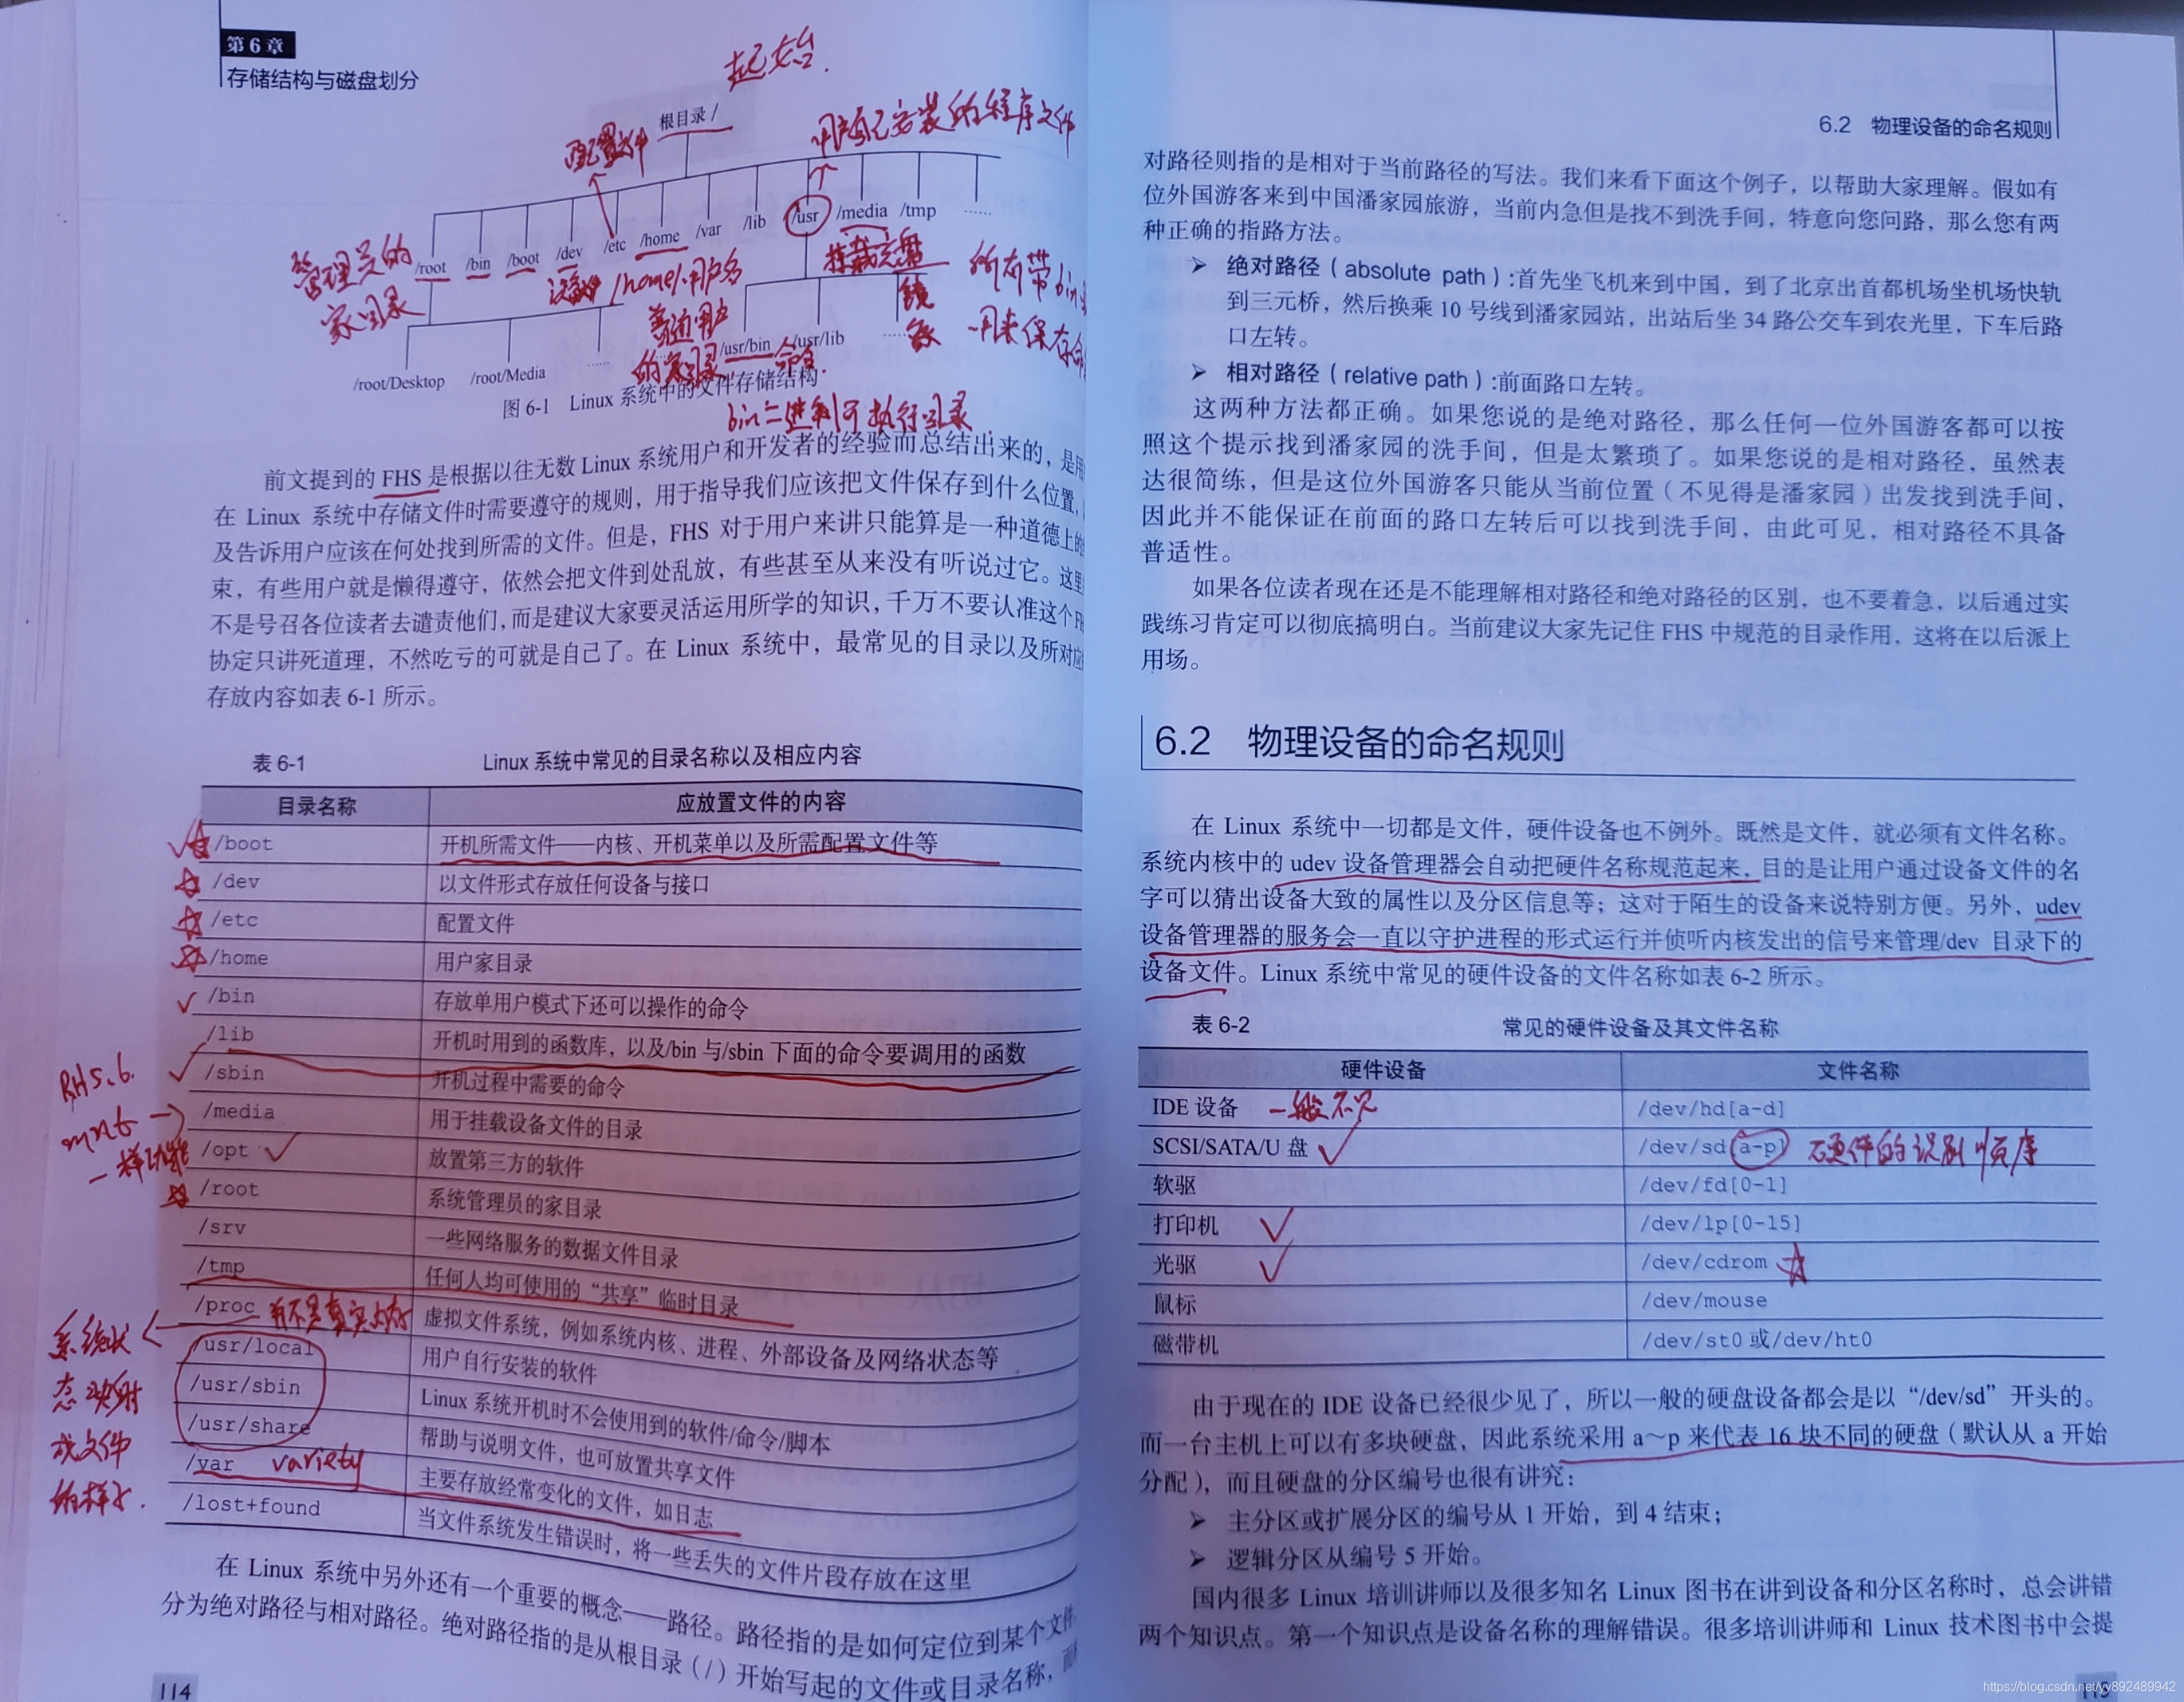 第6章
存储结构与磁盘划分
起始.
根目录 /
配置文件
用户自己安装的程序文件
管理员的
家目录
/root
/bin
/boot
/dev
/etc
/home
/var
/lib
/usr
/media
/tmp
……
设备
/home/用户名
挂载光盘
镜
像
所有带bin
用来保存命
普通用户
的家目录
命令.
/root/Desktop
/root/Media
……
/usr/bin
/usr/lib
……
图 6-1 Linux 系统中的文件存储结构
bin二进制可执行目录
前文提到的 FHS 是根据以往无数 Linux 系统用户和开发者的经验而总结出来的，是用
在 Linux 系统中存储文件时需要遵守的规则，用于指导我们应该把文件保存到什么位置，
及告诉用户应该在何处找到所需的文件。但是，FHS 对于用户来讲只能算是一种道德上的
束，有些用户就是懒得遵守，依然会把文件到处乱放，有些甚至从来没有听说过它。这里
不是号召各位读者去谴责他们，而是建议大家要灵活运用所学的知识，千万不要认准这个
协定只讲死道理，不然吃亏的可就是自己了。在 Linux 系统中，最常见的目录以及所对应
存放内容如表 6-1 所示。
表 6-1 Linux 系统中常见的目录名称以及相应内容
目录名称 应放置文件的内容
/boot 开机所需文件——内核、开机菜单以及所需配置文件等
/dev 以文件形式存放任何设备与接口
/etc 配置文件
/home 用户家目录
/bin 存放单用户模式下还可以操作的命令
/lib 开机时用到的函数库，以及/bin 与/sbin 下面的命令要调用的函数
/sbin 开机过程中需要的命令
/media 用于挂载设备文件的目录
/opt 放置第三方的软件
/root 系统管理员的家目录
/srv 一些网络服务的数据文件目录
/tmp 任何人均可使用的“共享”临时目录
/proc 虚拟文件系统，例如系统内核、进程、外部设备及网络状态等
/usr/local 用户自行安装的软件
/usr/sbin Linux 系统开机时不会使用到的软件/命令/脚本
/usr/share 帮助与说明文件，也可放置共享文件
/var 主要存放经常变化的文件，如日志
/lost+found 当文件系统发生错误时，将一些丢失的文件片段存放在这里
RH5.6.
mnt
一样功能
并不是真实内存
系统状
态映射
成文件
的样子.
variety
在 Linux 系统中另外还有一个重要的概念——路径。路径指的是如何定位到某个文件
分为绝对路径与相对路径。绝对路径指的是从根目录（/）开始写起的文件或目录名称，而
114
6.2 物理设备的命名规则
对路径则指的是相对于当前路径的写法。我们来看下面这个例子，以帮助大家理解。假如有
位外国游客来到中国潘家园旅游，当前内急但是找不到洗手间，特意向您问路，那么您有两
种正确的指路方法。
➢ 绝对路径（absolute path）:首先坐飞机来到中国，到了北京出首都机场坐机场快轨
到三元桥，然后换乘 10 号线到潘家园站，出站后坐 34 路公交车到农光里，下车后路
口左转。
➢ 相对路径（relative path）:前面路口左转。
这两种方法都正确。如果您说的是绝对路径，那么任何一位外国游客都可以按
照这个提示找到潘家园的洗手间，但是太繁琐了。如果您说的是相对路径，虽然表
达很简练，但是这位外国游客只能从当前位置（不见得是潘家园）出发找到洗手间，
因此并不能保证在前面的路口左转后可以找到洗手间，由此可见，相对路径不具备
普适性。
如果各位读者现在还是不能理解相对路径和绝对路径的区别，也不要着急，以后通过实
践练习肯定可以彻底搞明白。当前建议大家先记住 FHS 中规范的目录作用，这将在以后派上
用场。
6.2 物理设备的命名规则
在 Linux 系统中一切都是文件，硬件设备也不例外。既然是文件，就必须有文件名称。
系统内核中的 udev 设备管理器会自动把硬件名称规范起来，目的是让用户通过设备文件的名
字可以猜出设备大致的属性以及分区信息等；这对于陌生的设备来说特别方便。另外，udev
设备管理器的服务会一直以守护进程的形式运行并侦听内核发出的信号来管理/dev 目录下的
设备文件。Linux 系统中常见的硬件设备的文件名称如表 6-2 所示。
表 6-2 常见的硬件设备及其文件名称
硬件设备 文件名称
IDE 设备 一般不见 /dev/hd[a-d]
SCSI/SATA/U 盘 /dev/sd[a-p] 硬件的识别顺序
软驱 /dev/fd[0-1]
打印机 /dev/lp[0-15]
光驱 /dev/cdrom
鼠标 /dev/mouse
磁带机 /dev/st0 或/dev/ht0
由于现在的 IDE 设备已经很少见了，所以一般的硬盘设备都会是以“/dev/sd”开头的。
而一台主机上可以有多块硬盘，因此系统采用 a～p 来代表 16 块不同的硬盘（默认从 a 开始
分配），而且硬盘的分区编号也很有讲究：
➢ 主分区或扩展分区的编号从 1 开始，到 4 结束；
➢ 逻辑分区从编号 5 开始。
国内很多 Linux 培训讲师以及很多知名 Linux 图书在讲到设备和分区名称时，总会讲错
两个知识点。第一个知识点是设备名称的理解错误。很多培训讲师和 Linux 技术图书中会提
115
https://blog.csdn.net/yy892489942